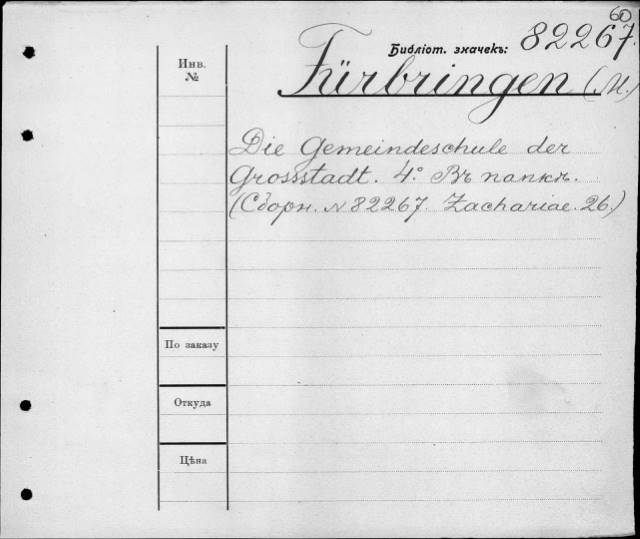 60
Библіот. значекъ: 82267.
Инв.
№
Fürbringen (M.)
Die Gemeindeschule der
Grossstadt. 4° Въ папкѣ.
(Сборн. N 82267. Zachariae. 26.)
По заказу
Откуда
Цѣна